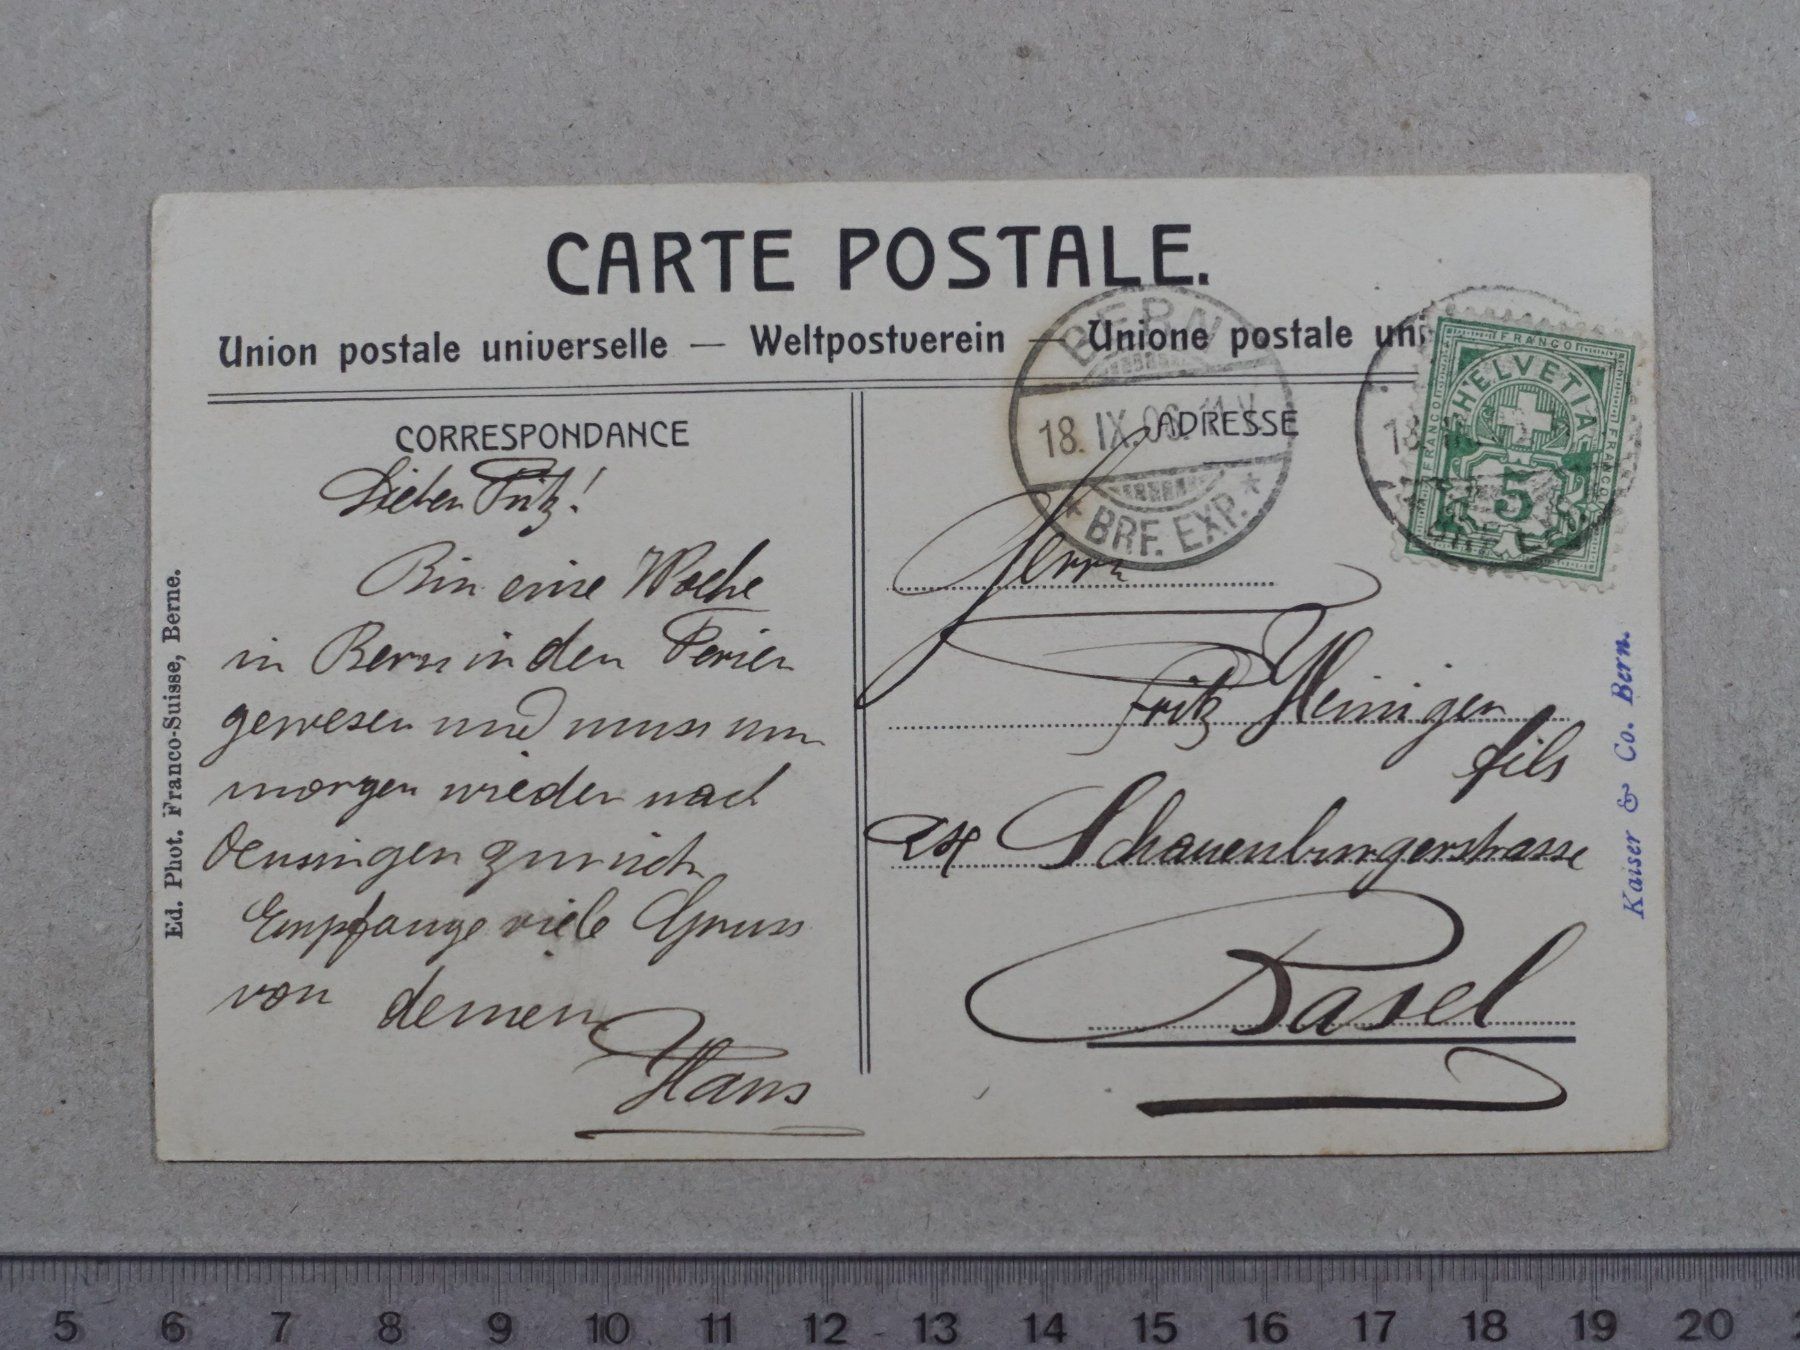 CARTE POSTALE.
Union postale universelle — Weltpostverein — Unione postale uni
CORRESPONDANCE
ADRESSE
Lieber Fritz!
Bin eine Woche
in Bern in den Ferien
gewesen und muss nun
morgen wieder nach
Oensingen zurück
Empfange viele Gruss
von deinem
Hans
Herrn
Fritz Heiniger
fils
Schauenburgerstrasse
Basel
BERN
18. IX. 06. 11 V.
* BRF. EXP. *
18
HELVETIA
FRANCO
FRANCO
FRANCO
5
Ed. Phot. Franco-Suisse, Berne.
Kaiser & Co. Bern.
5 6 7 8 9 10 11 12 13 14 15 16 17 18 19 20